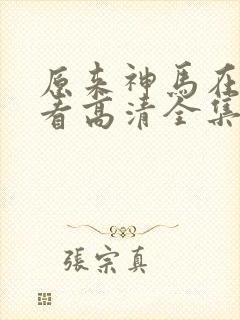 原来神马在
看高清全集
張宗真